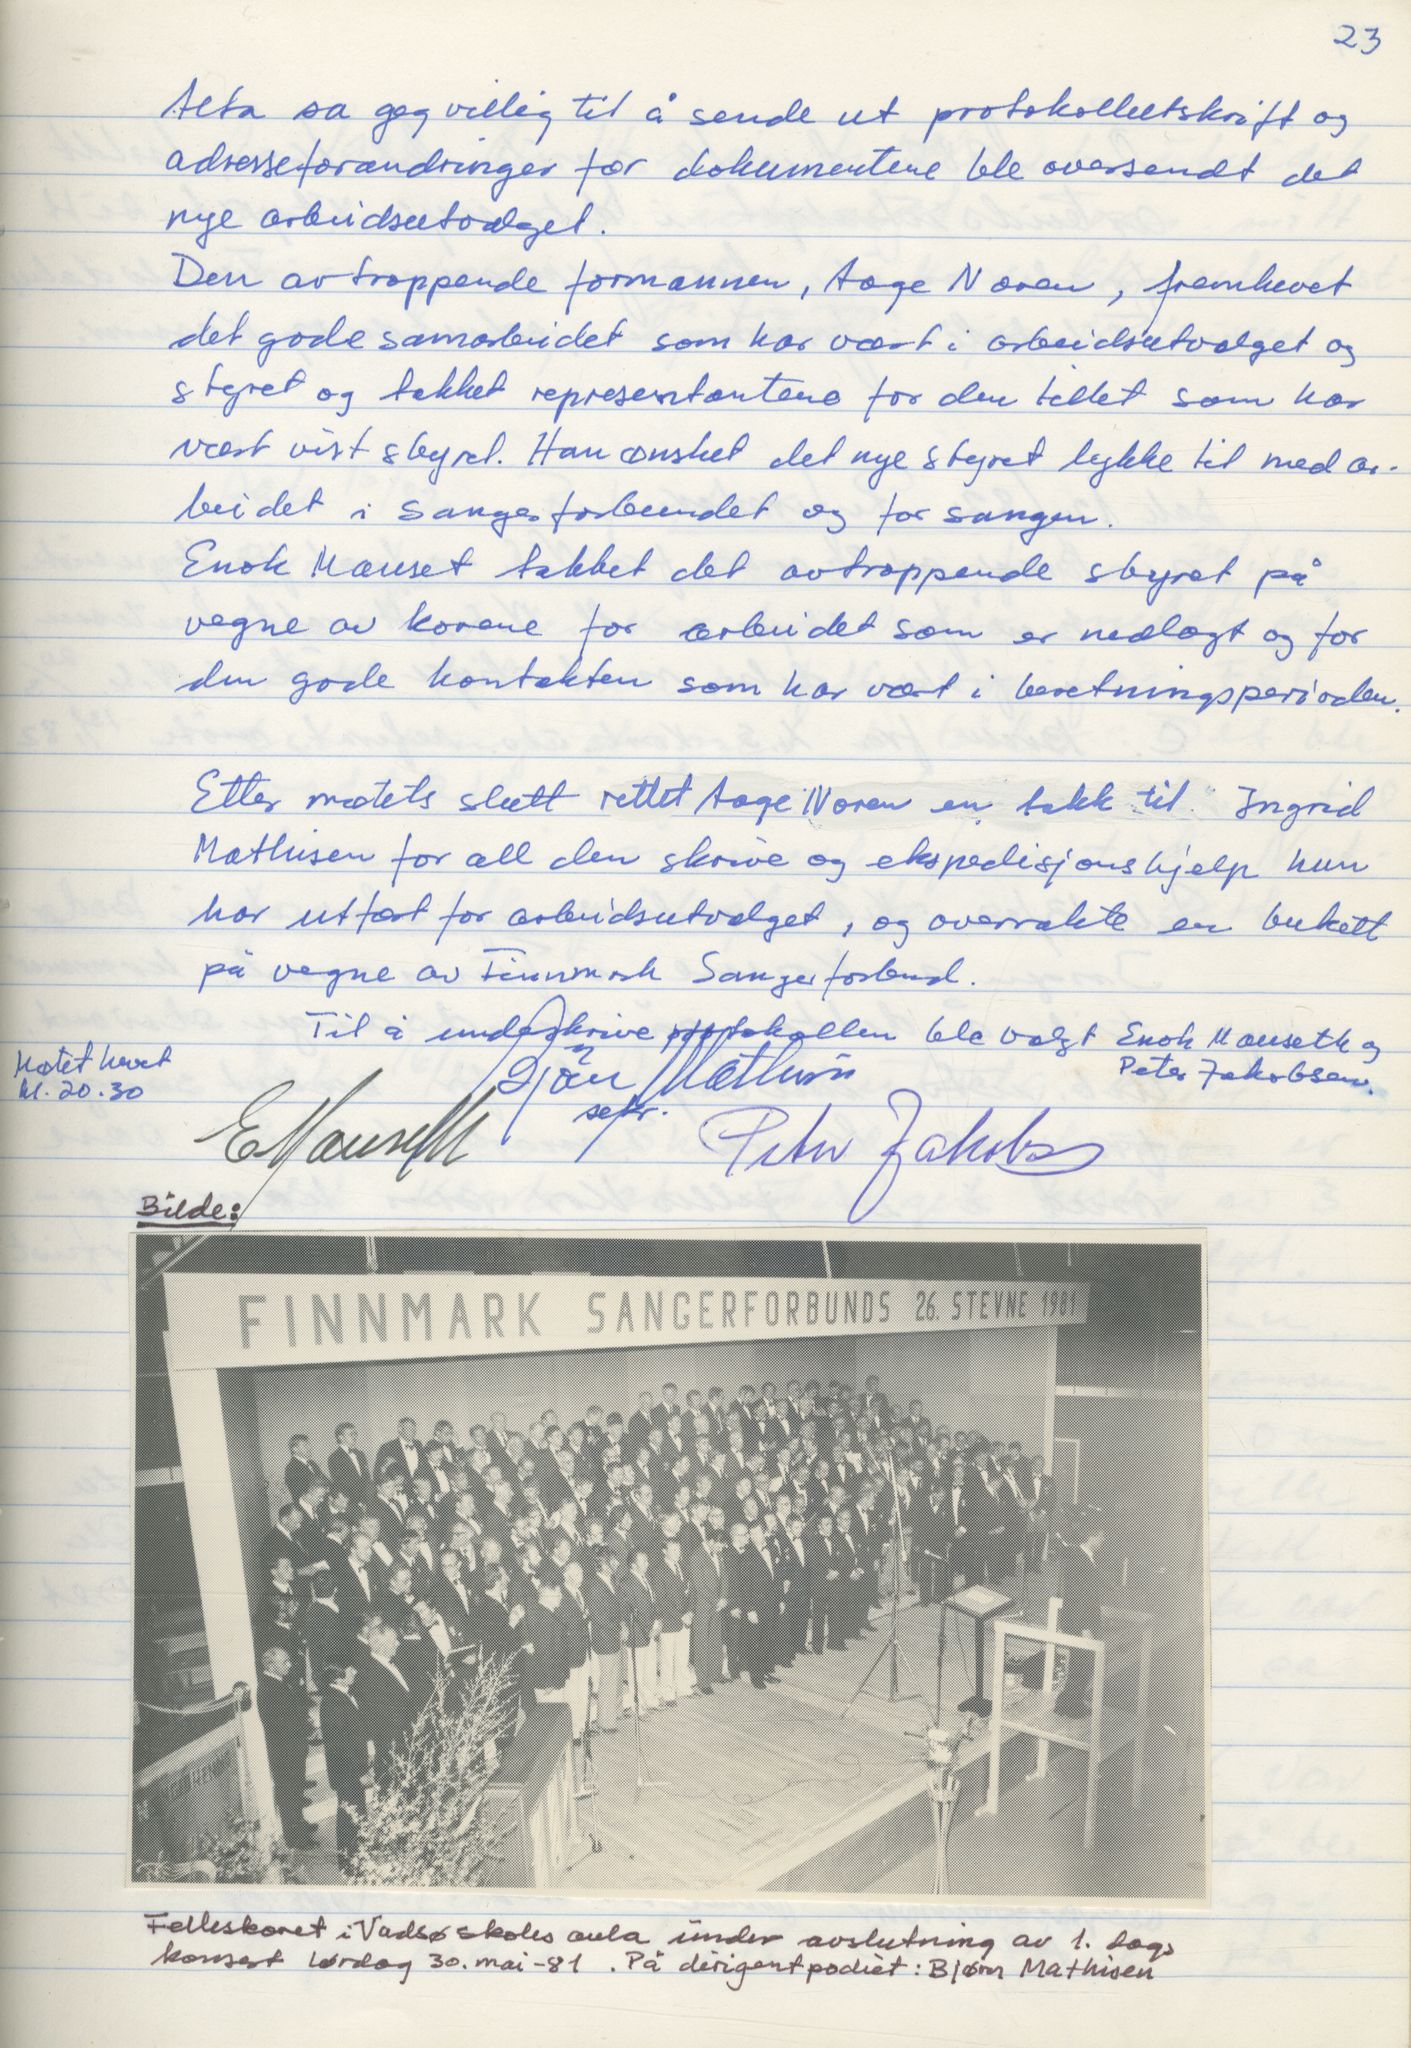 23
Alta sa seg villig til å sende ut protokollutskrift og
adresseforandringer før dokumentene ble oversendt det
nye arbeidsutvalget.
Den avtroppende formannen, Aage Noren, fremhevet
det gode samarbeidet som har vært i arbeidsutvalget og
styret og takket representantene for den tillit som har
vært vist styret. Han ønsket det nye styret lykke til med ar-
beidet i sangerforbundet og for sangen.
Enok Mauset takket det avtroppende styret på
vegne av korene for arbeidet som er nedlagt og for
den gode kontakten som har vært i beretningsperioden.
Etter møtets slutt rettet Aage Noren en takk til Ingrid
Mathisen for all den skrive og ekspedisjonshjelp hun
har utført for arbeidsutvalget, og overrakte en bukett
på vegne av Finnmark Sangerforbund.
Til å underskrive protokollen ble valgt Enok Mauseth og
Peter Jakobsen.
Møtet hevet
kl. 20.30
Bjørn Mathisen
sekr.
E Mauseth
Peter Jakobs
Bilde:
FINNMARK SANGERFORBUNDS 26. STEVNE 1981
Felleskoret i Vadsø skoles aula under avslutning av 1. dags
konsert lørdag 30. mai -81. På dirigentpodiet: Bjørn Mathisen